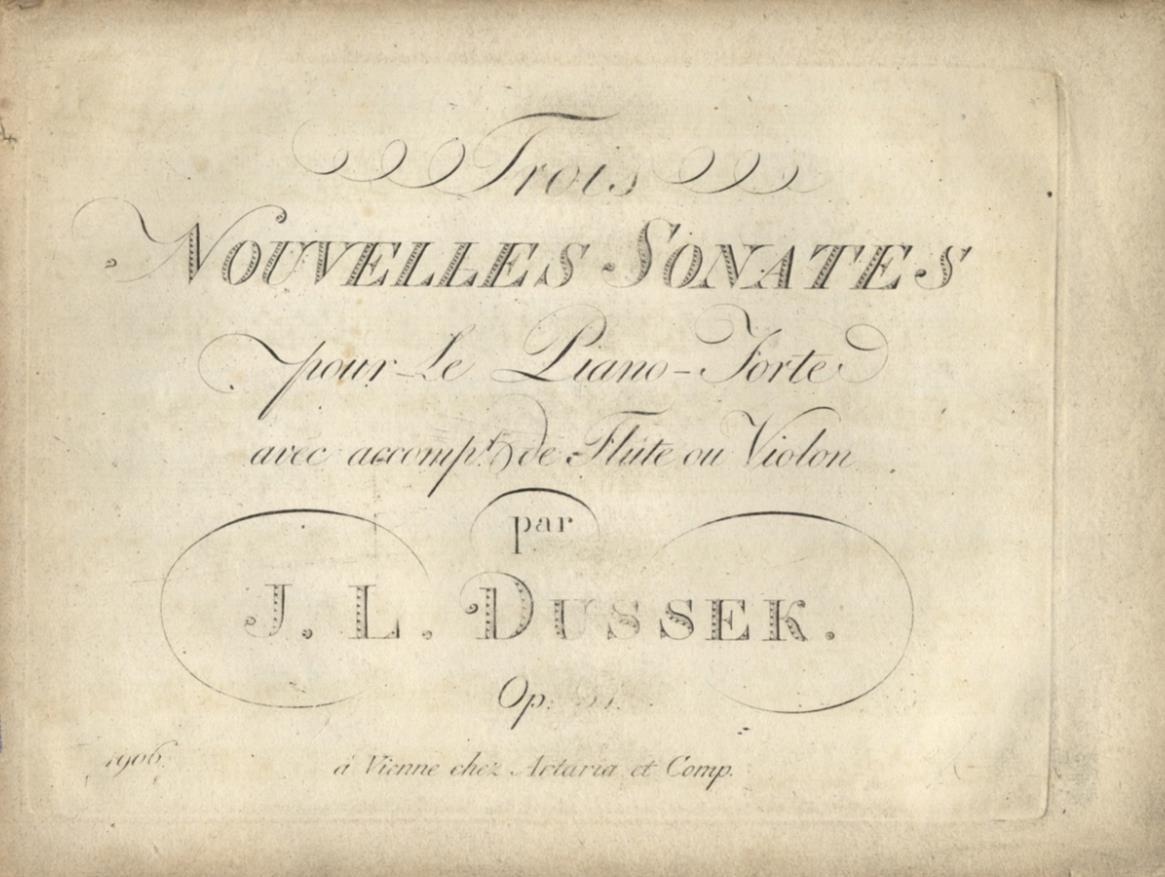 Trois
NOUVELLES SONATES
pour Le Piano-Forte
avec accomp.t de Flûte ou Violon
par
J. L. DUSSEK.
Op.
1906.
à Vienne chez Artaria et Comp.